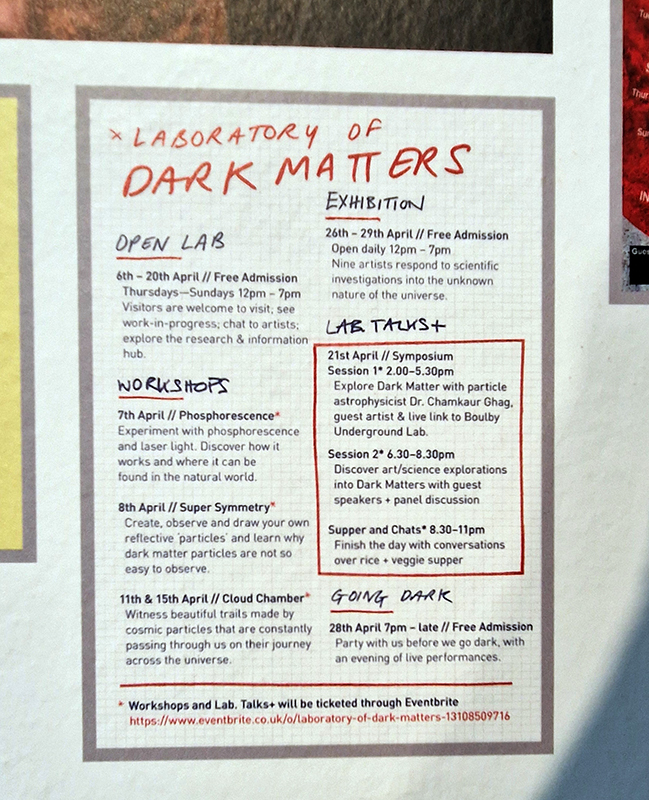 * LABORATORY OF
DARK MATTERS
OPEN LAB
6th – 20th April // Free Admission
Thursdays—Sundays 12pm – 7pm
Visitors are welcome to visit; see
work-in-progress; chat to artists;
explore the research & information
hub.
WORKSHOPS
7th April // Phosphorescence*
Experiment with phosphorescence
and laser light. Discover how it
works and where it can be
found in the natural world.
8th April // Super Symmetry*
Create, observe and draw your own
reflective 'particles' and learn why
dark matter particles are not so
easy to observe.
11th & 15th April // Cloud Chamber*
Witness beautiful trails made by
cosmic particles that are constantly
passing through us on their journey
across the universe.
EXHIBITION
26th – 29th April // Free Admission
Open daily 12pm – 7pm
Nine artists respond to scientific
investigations into the unknown
nature of the universe.
LAB TALKS+
21st April // Symposium
Session 1* 2.00–5.30pm
Explore Dark Matter with particle
astrophysicist Dr. Chamkaur Ghag,
guest artist & live link to Boulby
Underground Lab.
Session 2* 6.30–8.30pm
Discover art/science explorations
into Dark Matters with guest
speakers + panel discussion
Supper and Chats* 8.30–11pm
Finish the day with conversations
over rice + veggie supper
GOING DARK
28th April 7pm – late // Free Admission
Party with us before we go dark, with
an evening of live performances.
* Workshops and Lab. Talks+ will be ticketed through Eventbrite
https://www.eventbrite.co.uk/o/laboratory-of-dark-matters-13108509716